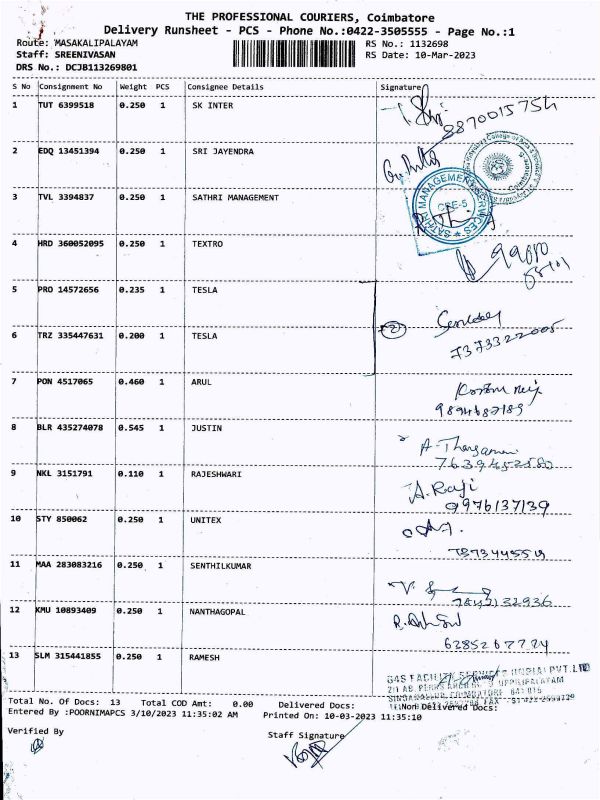 THE PROFESSIONAL COURIERS, Coimbatore
Delivery Runsheet - PCS - Phone No.:0422-3505555 - Page No.:1
Route: MASAKALIPALAYAM RS No.: 1132698
Staff: SREENIVASAN RS Date: 10-Mar-2023
DRS No.: DCJB113269801
S No Consignment No Weight PCS Consignee Details Signature
1 TUT 6399518 0.250 1 SK INTER
8870015754
2 EDQ 13451394 0.250 1 SRI JAYENDRA
3 TVL 3394837 0.250 1 SATHRI MANAGEMENT
SATHRI MANAGEMENT SERVICES
CBE-5
4 HRD 360052095 0.250 1 TEXTRO
5 PRO 14572656 0.235 1 TESLA
2
6 TRZ 335447631 0.200 1 TESLA
7373322005
7 PON 4517065 0.460 1 ARUL
9894687189
8 BLR 435274078 0.545 1 JUSTIN
9 NKL 3151791 0.110 1 RAJESHWARI
A. Raji
9976137139
10 STY 850062 0.250 1 UNITEX
11 MAA 283083216 0.250 1 SENTHILKUMAR
12 KMU 10893409 0.250 1 NANTHAGOPAL
13 SLM 315441855 0.250 1 RAMESH
G4S FACILITY SERVICES (INDIA) PVT.LTD
UPPILIPALAYAM
SINGANALLUR, COIMBATORE 641 015
Total No. Of Docs: 13 Total COD Amt: 0.00 Delivered Docs: Non Delivered Docs:
Entered By :POORNIMAPCS 3/10/2023 11:35:02 AM Printed On: 10-03-2023 11:35:10
Verified By Staff Signature